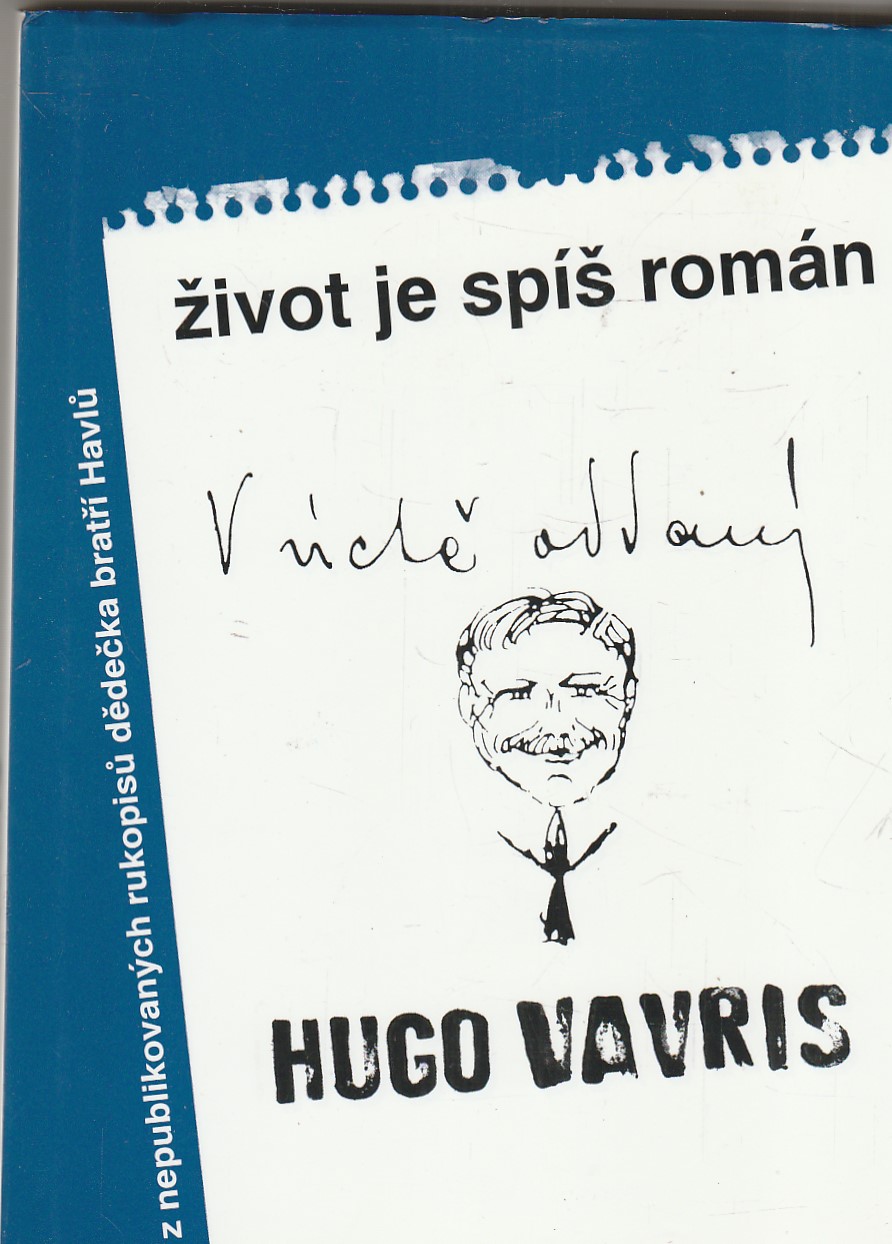 život je spíš román
V úctě oddaný
HUGO VAVRIS
z nepublikovaných rukopisů dědečka bratří Havlů